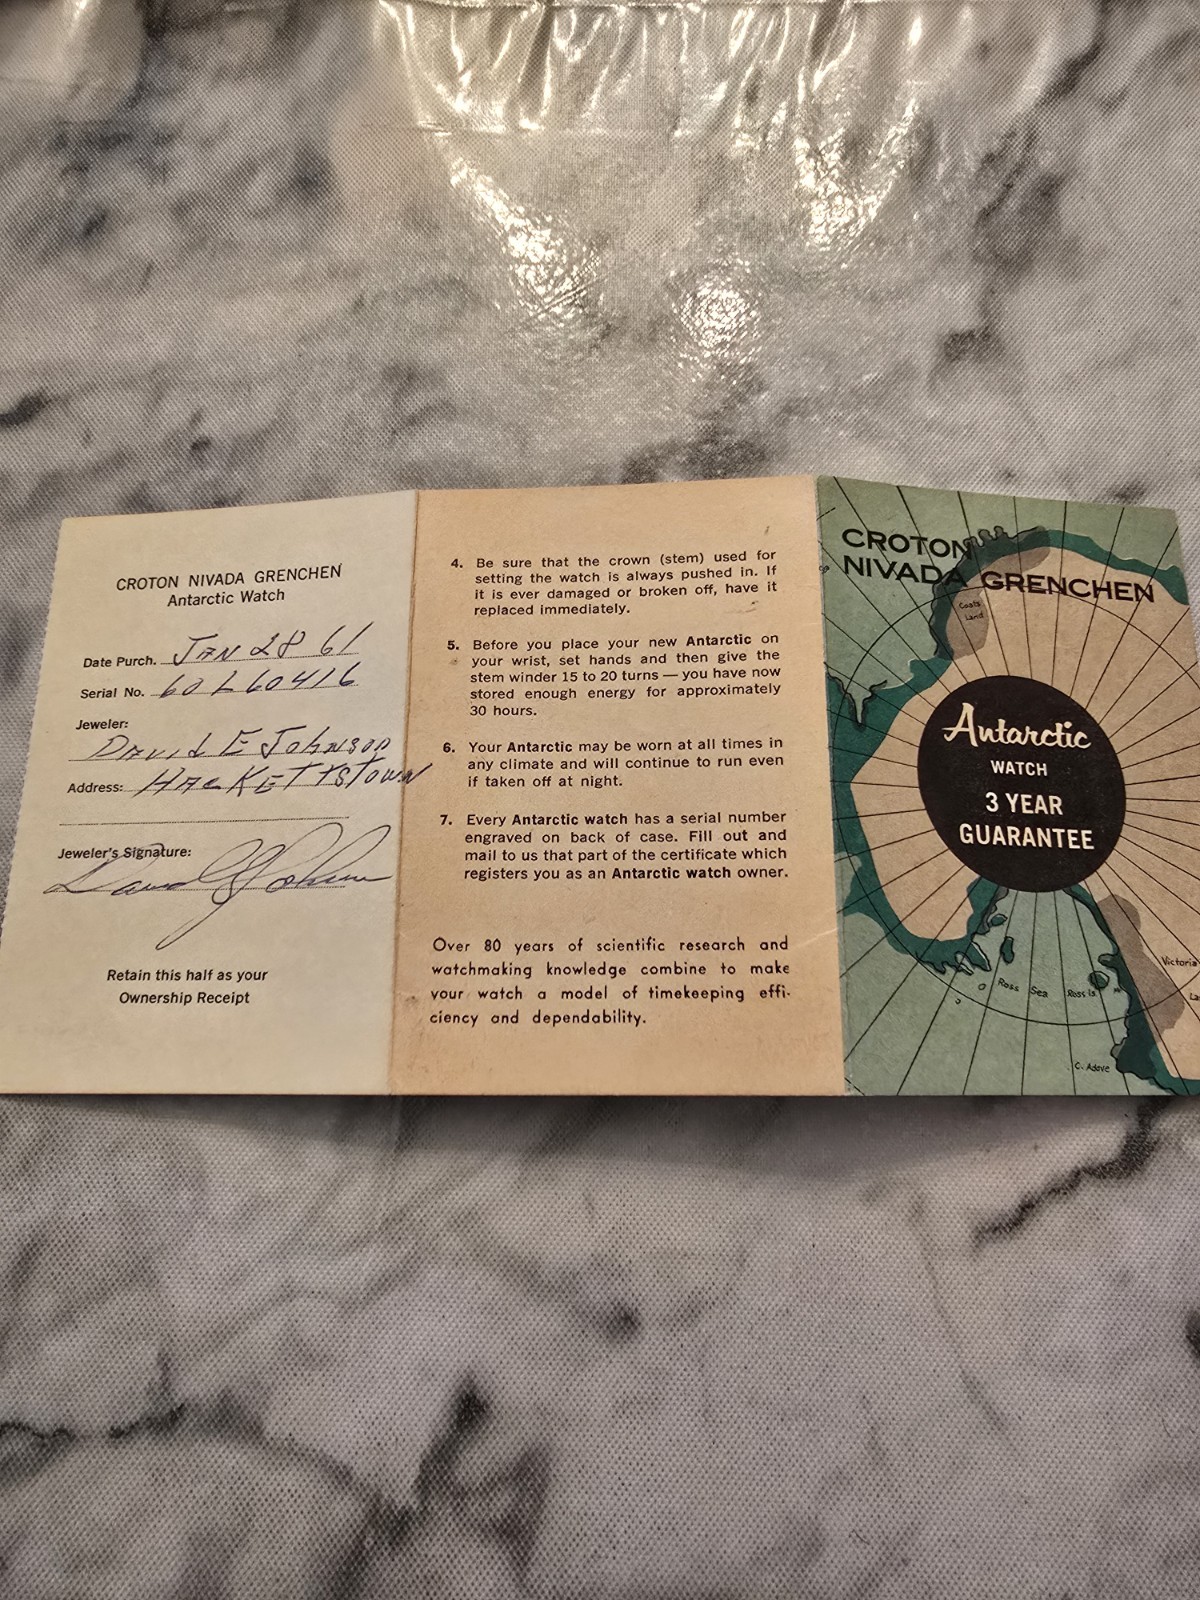 CROTON NIVADA GRENCHEN
Antarctic Watch
Date Purch. JAN 28 61
Serial No. 60L60416
Jeweler:
David E Johnson
Address: HACKETTSTOWN
Jeweler's Signature:
Retain this half as your
Ownership Receipt
4. Be sure that the crown (stem) used for
setting the watch is always pushed in. If
it is ever damaged or broken off, have it
replaced immediately.
5. Before you place your new Antarctic on
your wrist, set hands and then give the
stem winder 15 to 20 turns — you have now
stored enough energy for approximately
30 hours.
6. Your Antarctic may be worn at all times in
any climate and will continue to run even
if taken off at night.
7. Every Antarctic watch has a serial number
engraved on back of case. Fill out and
mail to us that part of the certificate which
registers you as an Antarctic watch owner.
Over 80 years of scientific research and
watchmaking knowledge combine to make
your watch a model of timekeeping effi-
ciency and dependability.
CROTON
NIVADA GRENCHEN
Coats
Land
Antarctic
WATCH
3 YEAR
GUARANTEE
Victoria
La
Ross Sea
Ross Is.
C. Adare